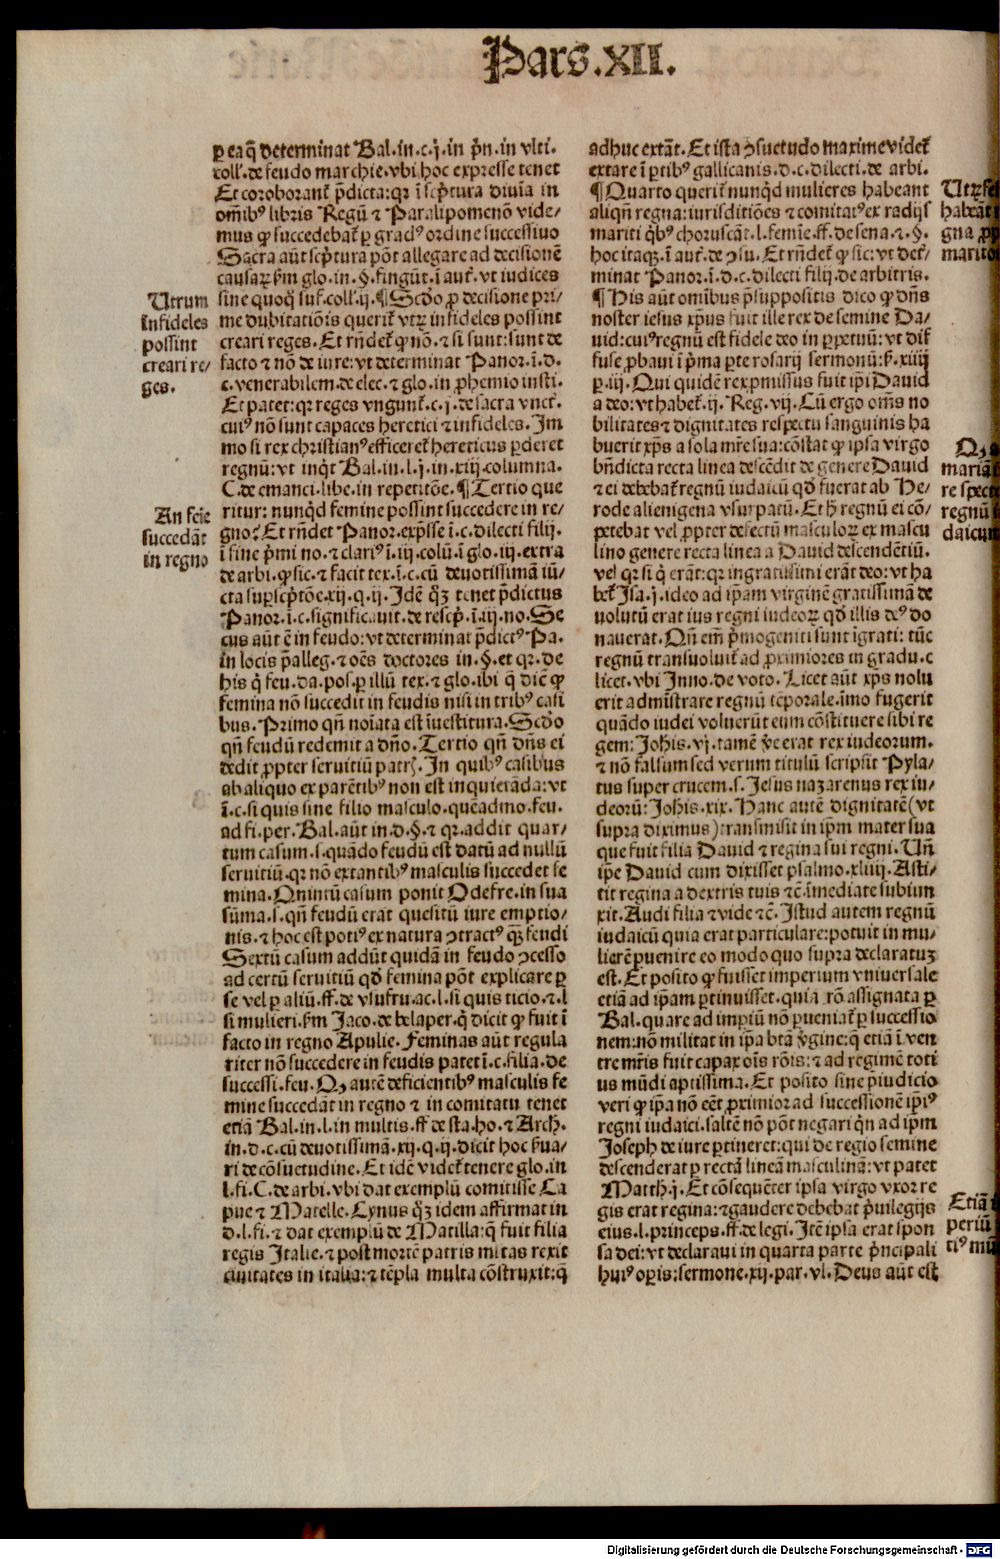 Pars.XII.
ꝑ ea q̄ determinat Bal.in.c.j.in p̄n.in vlti.
coll̓.de feudo marchie.vbi hoc expresse tenet
Et coroborant̄ p̄dicta:qꝛ ī sc̄ptura diuīa in
om̄ibꝰ libris Regū ⁊ Paralipomenō vide⸗
mus ꝙ succedebat̄ ꝑ gradꝰ ordine successiuo
Sacra aūt sc̄ptura pōt allegare ad decisionē
causaꝝ ẜm glo.in.§.fingūt.ī aut̄.vt iudices
sine quoq̄ suf.coll̓.ij.¶Scd̄o ꝓ decisione pri⸗
me dubitatiōis querit̄ vtꝝ infideles possint
creari reges. Et rn̄det̄ ꝙ nō.⁊ si sunt:sunt de
facto ⁊ nō de iure:vt determinat Panor.ī.d.
c.venerabilem.de elec.⁊ glo.in ꝓhemio insti.
Et patet:qꝛ reges vngunt̄.c.j.de sacra vnct̄.
cuiꝰ nō sunt capaces heretici ⁊ infideles. Im
mo si rex christianꝰ efficeret̄ hereticus ꝑderet
regnū:vt inq̇t Bal.in.l.j.in.xiij.columna.
C.de emanci.libe.in repetitōe.¶Tertio que
ritur:nunqd̄ femine possint succedere in re⸗
gno? Et rn̄det Panor.exp̄sse ī.c.dilecti filij.
ī fine p̄mi no.⁊ clariꝰ ī.iij.colū.ī glo.iij.extra
de arbi.ꝙ sic.⁊ facit tex.ī.c.cū deuotissimā iū⸗
cta suꝑscp̄tōe.xij.q.ij.Idē qꝫ tenet p̄dictus
Panor.ī.c.significauit.de rescp̄.ī.iij.no.Se
cus aūt ē in feudo:vt determinat p̄dictꝰ Pa.
in locis p̄alleg.⁊ oēs doctores in.§.et qꝛ.de
his q̇ feu.da.pos.ꝑ illū tex.⁊ glo.ibi q̄ dic̄ ꝙ
femina nō succedit in feudis nisi in tribꝰ casi
bus.Primo qn̄ noīata est īuestitura.Scd̄o
qn̄ feudū redemit a dn̄o.Tertio qn̄ dn̄s ei
dedit ꝓpter seruitiū patrꝭ.In quibꝰ casibus
ab aliquo ex parētibꝰ non est inquietāda:vt
ī.c.si quis sine filio masculo.quēadmo.feu.
ad fi.per.Bal.aūt in.d.§.⁊ qꝛ.addit quar⸗
tum casum.s.quādo feudū est datū ad nullū
seruitiū.qꝛ nō extantibꝰ masculis succedet fe
mina.Quintū casum ponit Odefre.in sua
sūma.s.qn̄ feudū erat quesitū iure emptio⸗
nis.⁊ hoc est potiꝰ ex natura ↄtractꝰ qꝫ̄ feudi
Sextū casum addūt quidā in feudo ↄcesso
ad certū seruitiū qd̄ femina pōt explicare ꝑ
se vel ꝑ aliū.ff.de vsufru.ac.l.si quis ticio.⁊.l
si mulieri.ẜm Jaco.de belaper.q̇ dicit ꝙ fuit ī
facto in regno Apulie. Feminas aūt regula
riter nō succedere in feudis patet ī.c.filia.de
successi.feu.Qꝫ autē deficientibꝰ masculis fe
mine succedāt in regno ⁊ in comitatu tenet
etiā Bal.in.l.in multis.ff.de sta.ho.⁊ Arch̄.
in.d.c.cū deuotissimā.xij.q.ij.dicit hoc ẜua⸗
ri de cōsuetudine. Et idē videt̄ tenere glo.in
l.fi.C.de arbi.vbi dat exemplū comitisse Ca
pue ⁊ Matelle.Cynus qꝫ idem affirmat in
d.l.fi.⁊ dat exemplū de Matilla:q̄ fuit filia
regis Italie.⁊ post mortē patris mitas rexit
ciuitates in italia:⁊ tēpla multa cōstruxit:q̄
Utrum
infideles
possint
creari re⸗
ges.
An feīe
succedāt
in regno
adhuc extāt. Et ista ↄsuetudo maxime videt̄
extare ī ꝑtibꝰ gallicanis.d.c.dilecti.de arbi.
¶Quarto querit̄ nunqd̄ mulieres habeant
aliqn̄ regna:iurisditiōes ⁊ comitatꝰ ex radijs
mariti q̇bꝰ choruscāt.l.femīe.ff.de sena.⁊.§.
hoc itaqꝫ.ī aut̄.de ↄsu. Et rn̄det̄ ꝙ sic:vt det̄⸗
minat Panor.ī.d.c.dilecti filij.de arbitris.
¶His aūt omibus p̄suppositis dico ꝙ dn̄s
noster iesus xp̄us fuit ille rex de semine Da⸗
uid:cuiꝰ regnū est fidele deo in ꝑpetuū:vt dif
fuse ꝓbaui ī p̄ma ꝑte rosarij sermonū:ẜ.xiiij
ꝑ.iij.Qui quidē rex ꝓmissus fuit ip̄i Dauid
a deo:vt habet̄.ij.Reg.vij.Cū ergo om̄s no
bilitates ⁊ dignitates respectu sanguinis ha
buerit xp̄s a sola mr̄e sua:cōstat ꝙ ipsa virgo
bn̄dicta recta linea descēdit de genere Dauid
⁊ ei debebat̄ regnū iudaicū qd̄ fuerat ab He⸗
rode alienigena vsurpatū. Et hꝭ regnū ei cō⸗
petebat vel ꝓpter defectū masculoꝝ ex mascu
lino genere recta linea a Dauid descendētiū.
vel qꝛ si q̇ erāt:qꝛ ingratissimi erāt deo:vt ha
bet̄ Isa.j.ideo ad ip̄am virginē gratissimā de
uolutū erat ius regni iudeoꝝ qd̄ illis deꝰ do
nauerat.Qn̄ em̄ p̄mogeniti sunt īgrati:tūc
regnū transuoluit̄ ad ꝓximiores in gradu.c
licet.vbi Inno.de voto.Licet aūt xp̄s nolu
erit admīstrare regnū tēporale.īmo fugerit
quādo iudei voluerūt eum cōstituere sibi re
gem:Joh̄is.vj.tamē ve̓ erat rex iudeorum.
⁊ nō falsum sed verum titulū scripsit Pyla⸗
tus super crucem.s.Jesus nazarenus rex iu⸗
deorū:Joh̄is.xix.Hanc autē dignitatē(vt
supra diximus)transmisit in ip̄m mater sua
que fuit filia Dauid ⁊ regina sui regni.Un̄
ip̄e Dauid cum dixisset psalmo.xliiij.Asti⸗
tit regina a dextris tuis ⁊c̄.īmediate subiun
xit.Audi filia ⁊ vide ⁊c̄.Istud autem regnū
iudaicū quia erat particulare:potuit in mu⸗
lierē ꝑuenire eo modo quo supra declaratuꝫ
est. Et posito ꝙ fuisset imperium vniuersale
etiā ad ip̄am ꝑtinuisset.quia rō assignata ꝑ
Bal.quare ad impiū nō ꝑueniat̄ ꝑ successio
nem:nō militat in ip̄a btā v̓gine:q̄ etiā ī ven
tre mr̄is fuit capax oīs rōis:⁊ ad regimē toti
us mūdi aptissima. Et posito sine p̄iudicio
veri ꝙ ip̄a nō eēt ꝓximior ad successionē ip̄iꝰ
regni iudaici.saltē nō pōt negari qn̄ ad ip̄m
Joseph de iure ꝑtineret:qui de regio semine
descenderat ꝑ rectā lineā masculinā:vt patet
Matth.j. Et cōsequēter ipsa virgo vxor re
gis erat regina:⁊ gaudere debebat p̄uilegijs
eius.l.princeps.ff.de legi.Itē ipsa erat spon
sa dei:vt declaraui in quarta parte p̄ncipali
huiꝰ oꝑis:sermone.xij.par.vl.Deus aūt est
Digitalisierung gefördert durch die Deutsche Forschungsgemeinschaft - DFG